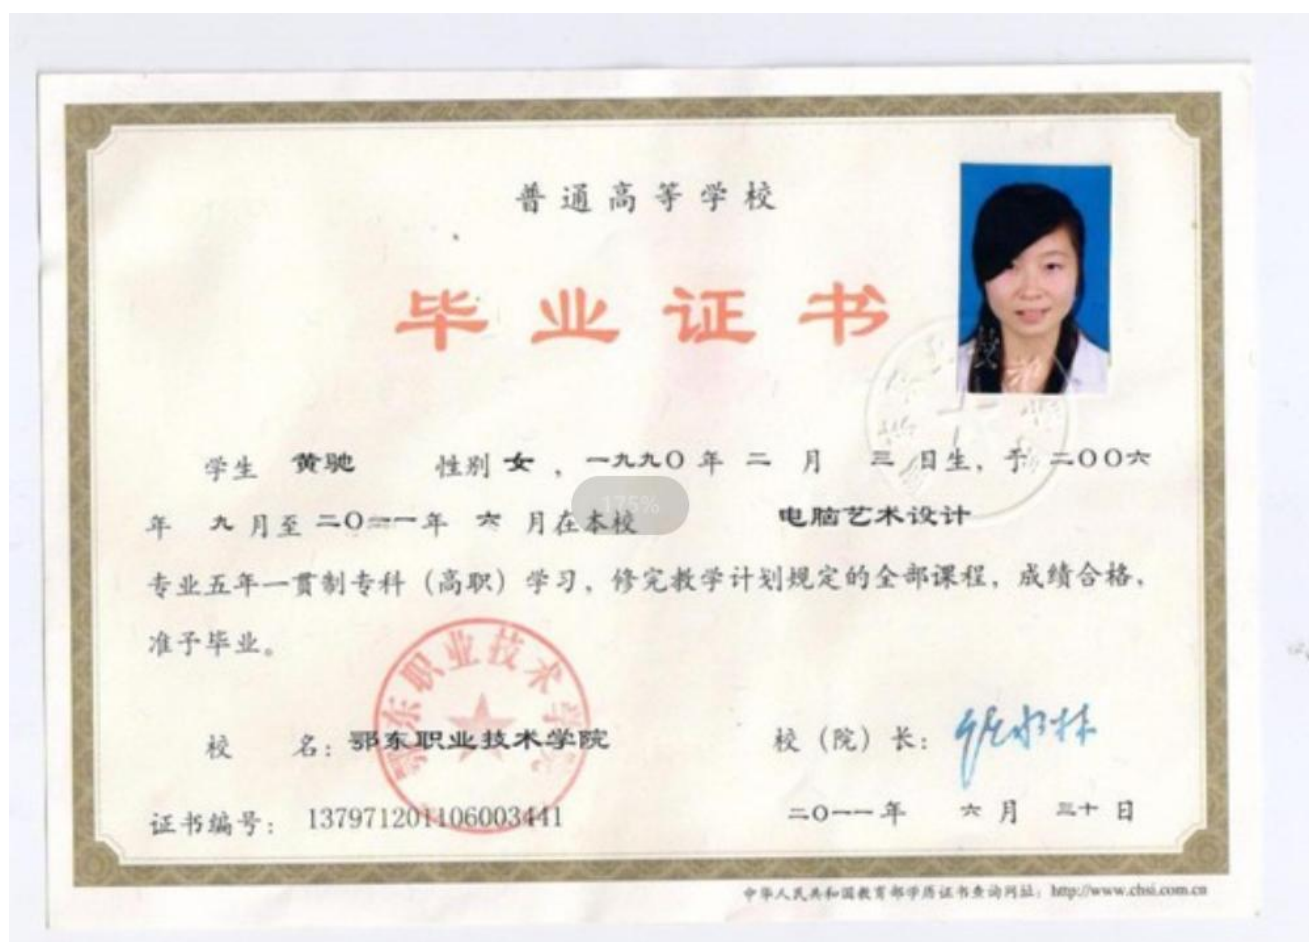 普通高等学校
毕业证书
学生 黄驰 性别 女，一九九〇年 二 月 三 日生，于 二〇〇六
年 九 月至 二〇一一年 六 月在本校 电脑艺术设计
175%
专业五年一贯制专科（高职）学习，修完教学计划规定的全部课程，成绩合格，
准予毕业。
鄂东职业技术学院
校 名：鄂东职业技术学院 校（院）长：
证书编号：137971201106003441 二〇一一年 六月 三十日
中华人民共和国教育部学历证书查询网址：http://www.chsi.com.cn